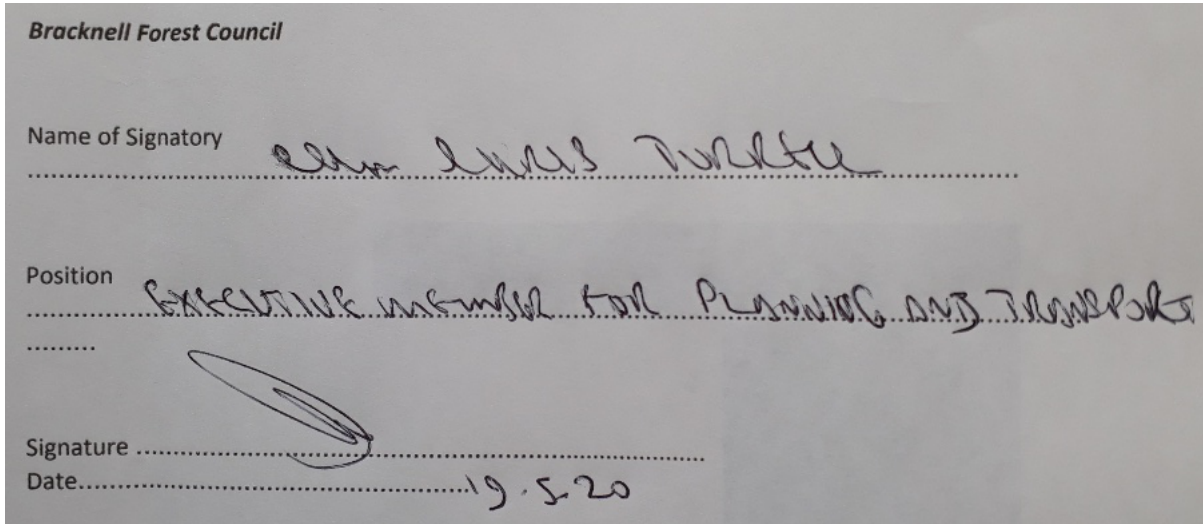 Bracknell Forest Council
Name of Signatory Cllr CHRIS TURRELL
Position EXECUTIVE MEMBER FOR PLANNING AND TRANSPORT
Signature
Date 19.5.20